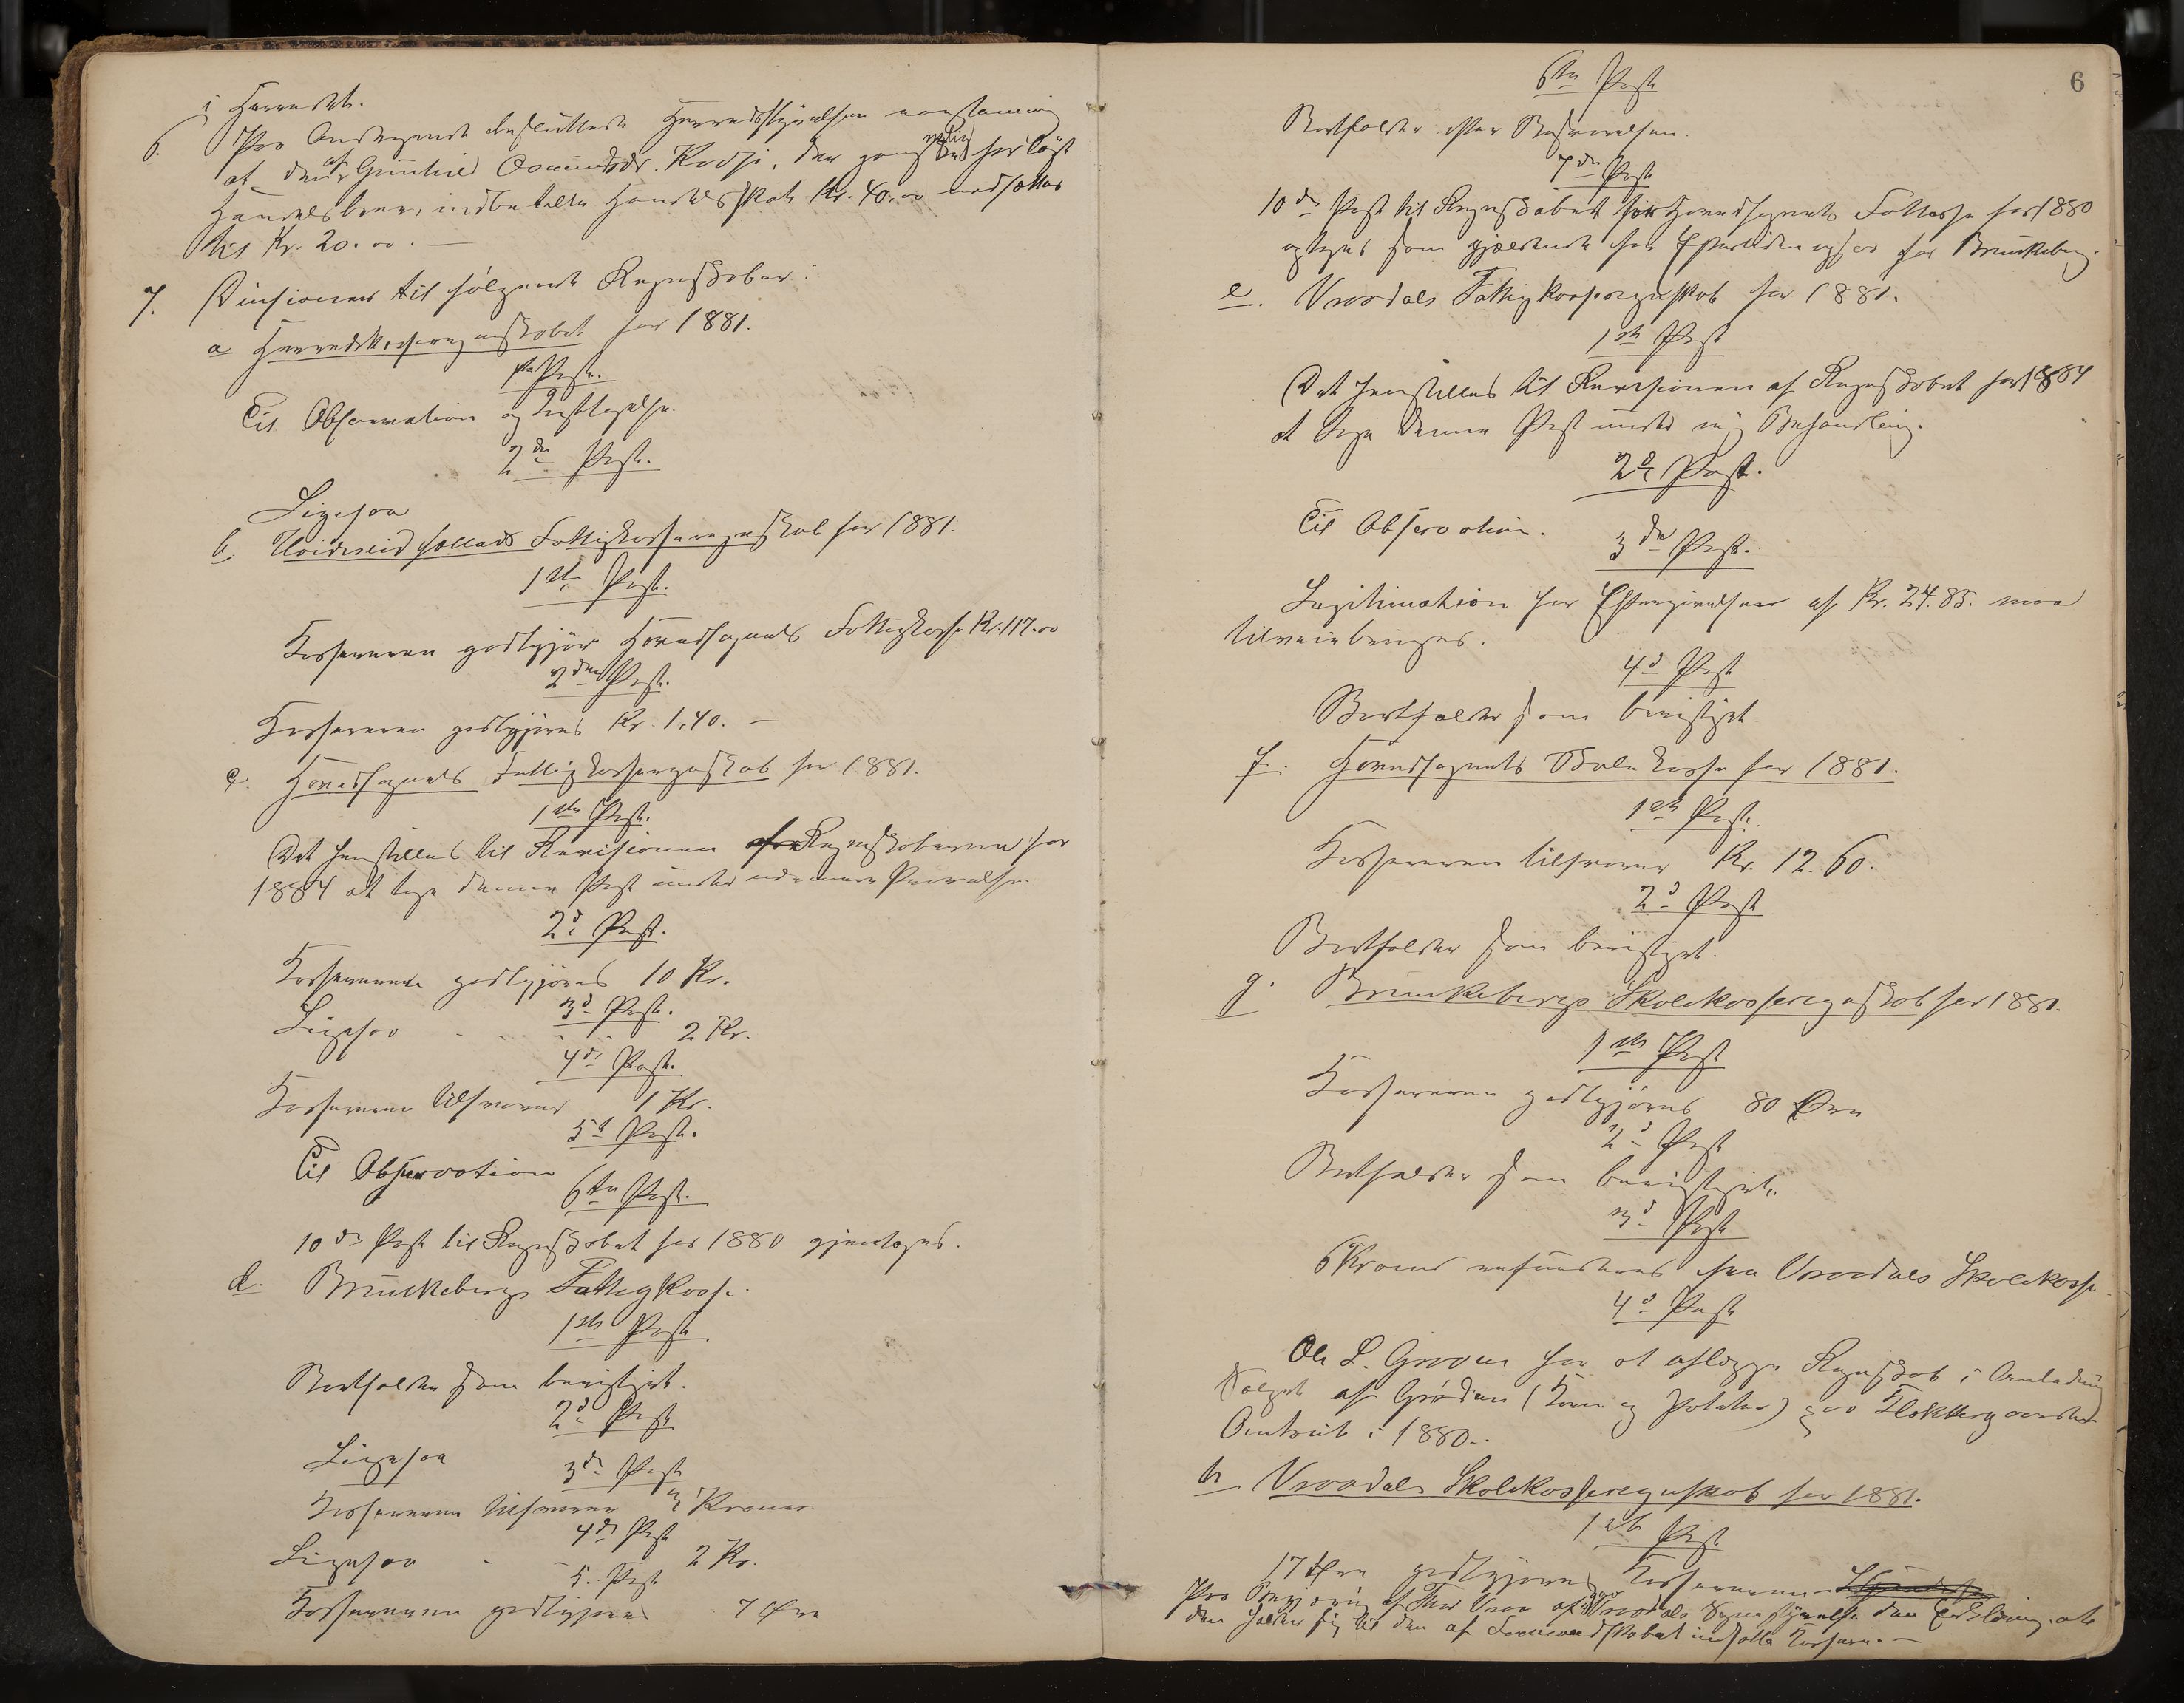 i Herredet.
6. Paa Andragende besluttede Herredsstyrelsen eenstemmig
at den af Gunhild Osmundsdr. Rodji, der ganske har löst
Handelsbrev, indbetalte Handelsskat Kr. 40.00 nedsættes
til Kr. 20.00. —
7. Decisioner til følgende Regnskaber:
a Herredskasseregnskabet for 1881.
1ste Post.
Til Observation og Iagttagelse.
2den Post.
Ligesaa
b. Hvideseid Sogns Fattigkasseregnskab for 1881.
1ste Post.
Kassereren godtgjør Hovedsognets Fattigkasse Kr. 117.00
2den Post.
Kassereren godtgjøres Kr. 1,40. —
c. Hovedsognets Fattigkasseregnskab for 1881.
1ste Post.
Det henstilles til Revisionen Regnskaberne for
1884 at tage denne Post under nærmere Prøvelse.
2d Post.
Kassereren godtgjøres 10 Kr.
3d Post.
Ligesaa - - - - 2 Kr.
4de Post.
Kassereren tilsvarer 1 Kr.
5t Post.
Til Observation
6te Post.
10de Post til Regnskabet for 1880 gjentages.
d. Brunkebergs Fattigkasse.
1ste Post
Bortfalder som bevisligt.
2d Post
Ligesaa
3de Post
Kassereren tilsvarer 3 Kroner
4de Post
Ligesaa - - 2 Kr.
5. Post
Kassereren godtgjøres 7 Øre
6
6te Post
Bortfalder efter Besvarelsen.
7de Post
10de Post til Regnskabet for Hovedsognets Fattigkasse for 1880
optages som gjældende for Eftertiden ogsaa for Brunkeberg.
e. Vraadals Fattigkasseregnskab for 1881.
1ste Post
Det henstilles til Revisionen af Regnskabet for 1884
at tage denne Post under ny Behandling.
2d Post.
Til Observation.
3die Post.
Legitimation for Eftergivelsen af Kr. 24.85. maa
tilveiebringes.
4d Post
Bortfalder som bevisligt.
f. Hovedsognets Skolekasse for 1881.
1ste Post.
Kassereren tilsvarer Kr. 12.60.
2d Post
Bortfalder som bevisligt.
g. Brunkebergs Skolekasseregnskab for 1881.
1ste Post
Kassereren godtgjøres 80 Øre
2d Post
Bortfalder som bevisligt.
3d Post
6 Kroner refunderes fra Vraadals Skolekasse
4d Post
Ole L. Groven har at aflægge Regnskab i Anledning
Salget af Grøden (Korn og Poteter) paa
i 1880.
h Vraadals Skolekasseregnskab for 1881.
1ste Post
17 Øre godtgjøres Kassereren
Paa Begjæring af Thor Vraa afgav Vraadals Sognestyrelse den Erklæring, at
den holder sig til den af Formandskabet indsatte Kasserer. —